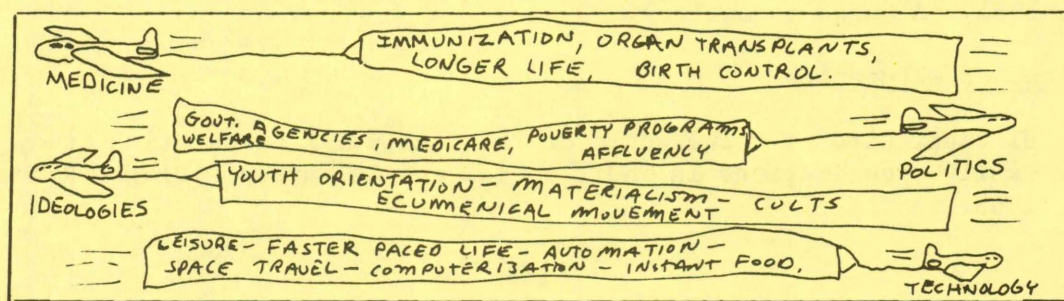 IMMUNIZATION, ORGAN TRANSPLANTS,
LONGER LIFE, BIRTH CONTROL.
MEDICINE
GOVT. AGENCIES, MEDICARE, POVERTY PROGRAMS
WELFARE AFFLUENCY
POLITICS
YOUTH ORIENTATION - MATERIALISM - CULTS
ECUMENICAL MOVEMENT
IDEOLOGIES
LEISURE - FASTER PACED LIFE - AUTOMATION -
SPACE TRAVEL - COMPUTERIZATION - INSTANT FOOD.
TECHNOLOGY